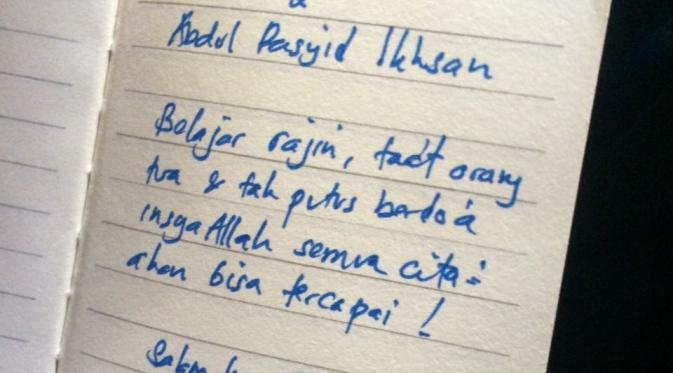 Abdul Rasyid Ikhsan
Belajar rajin, taat orang
tua & tak putus berdo'a
insya Allah semua cita²
akan bisa tercapai!
Salam